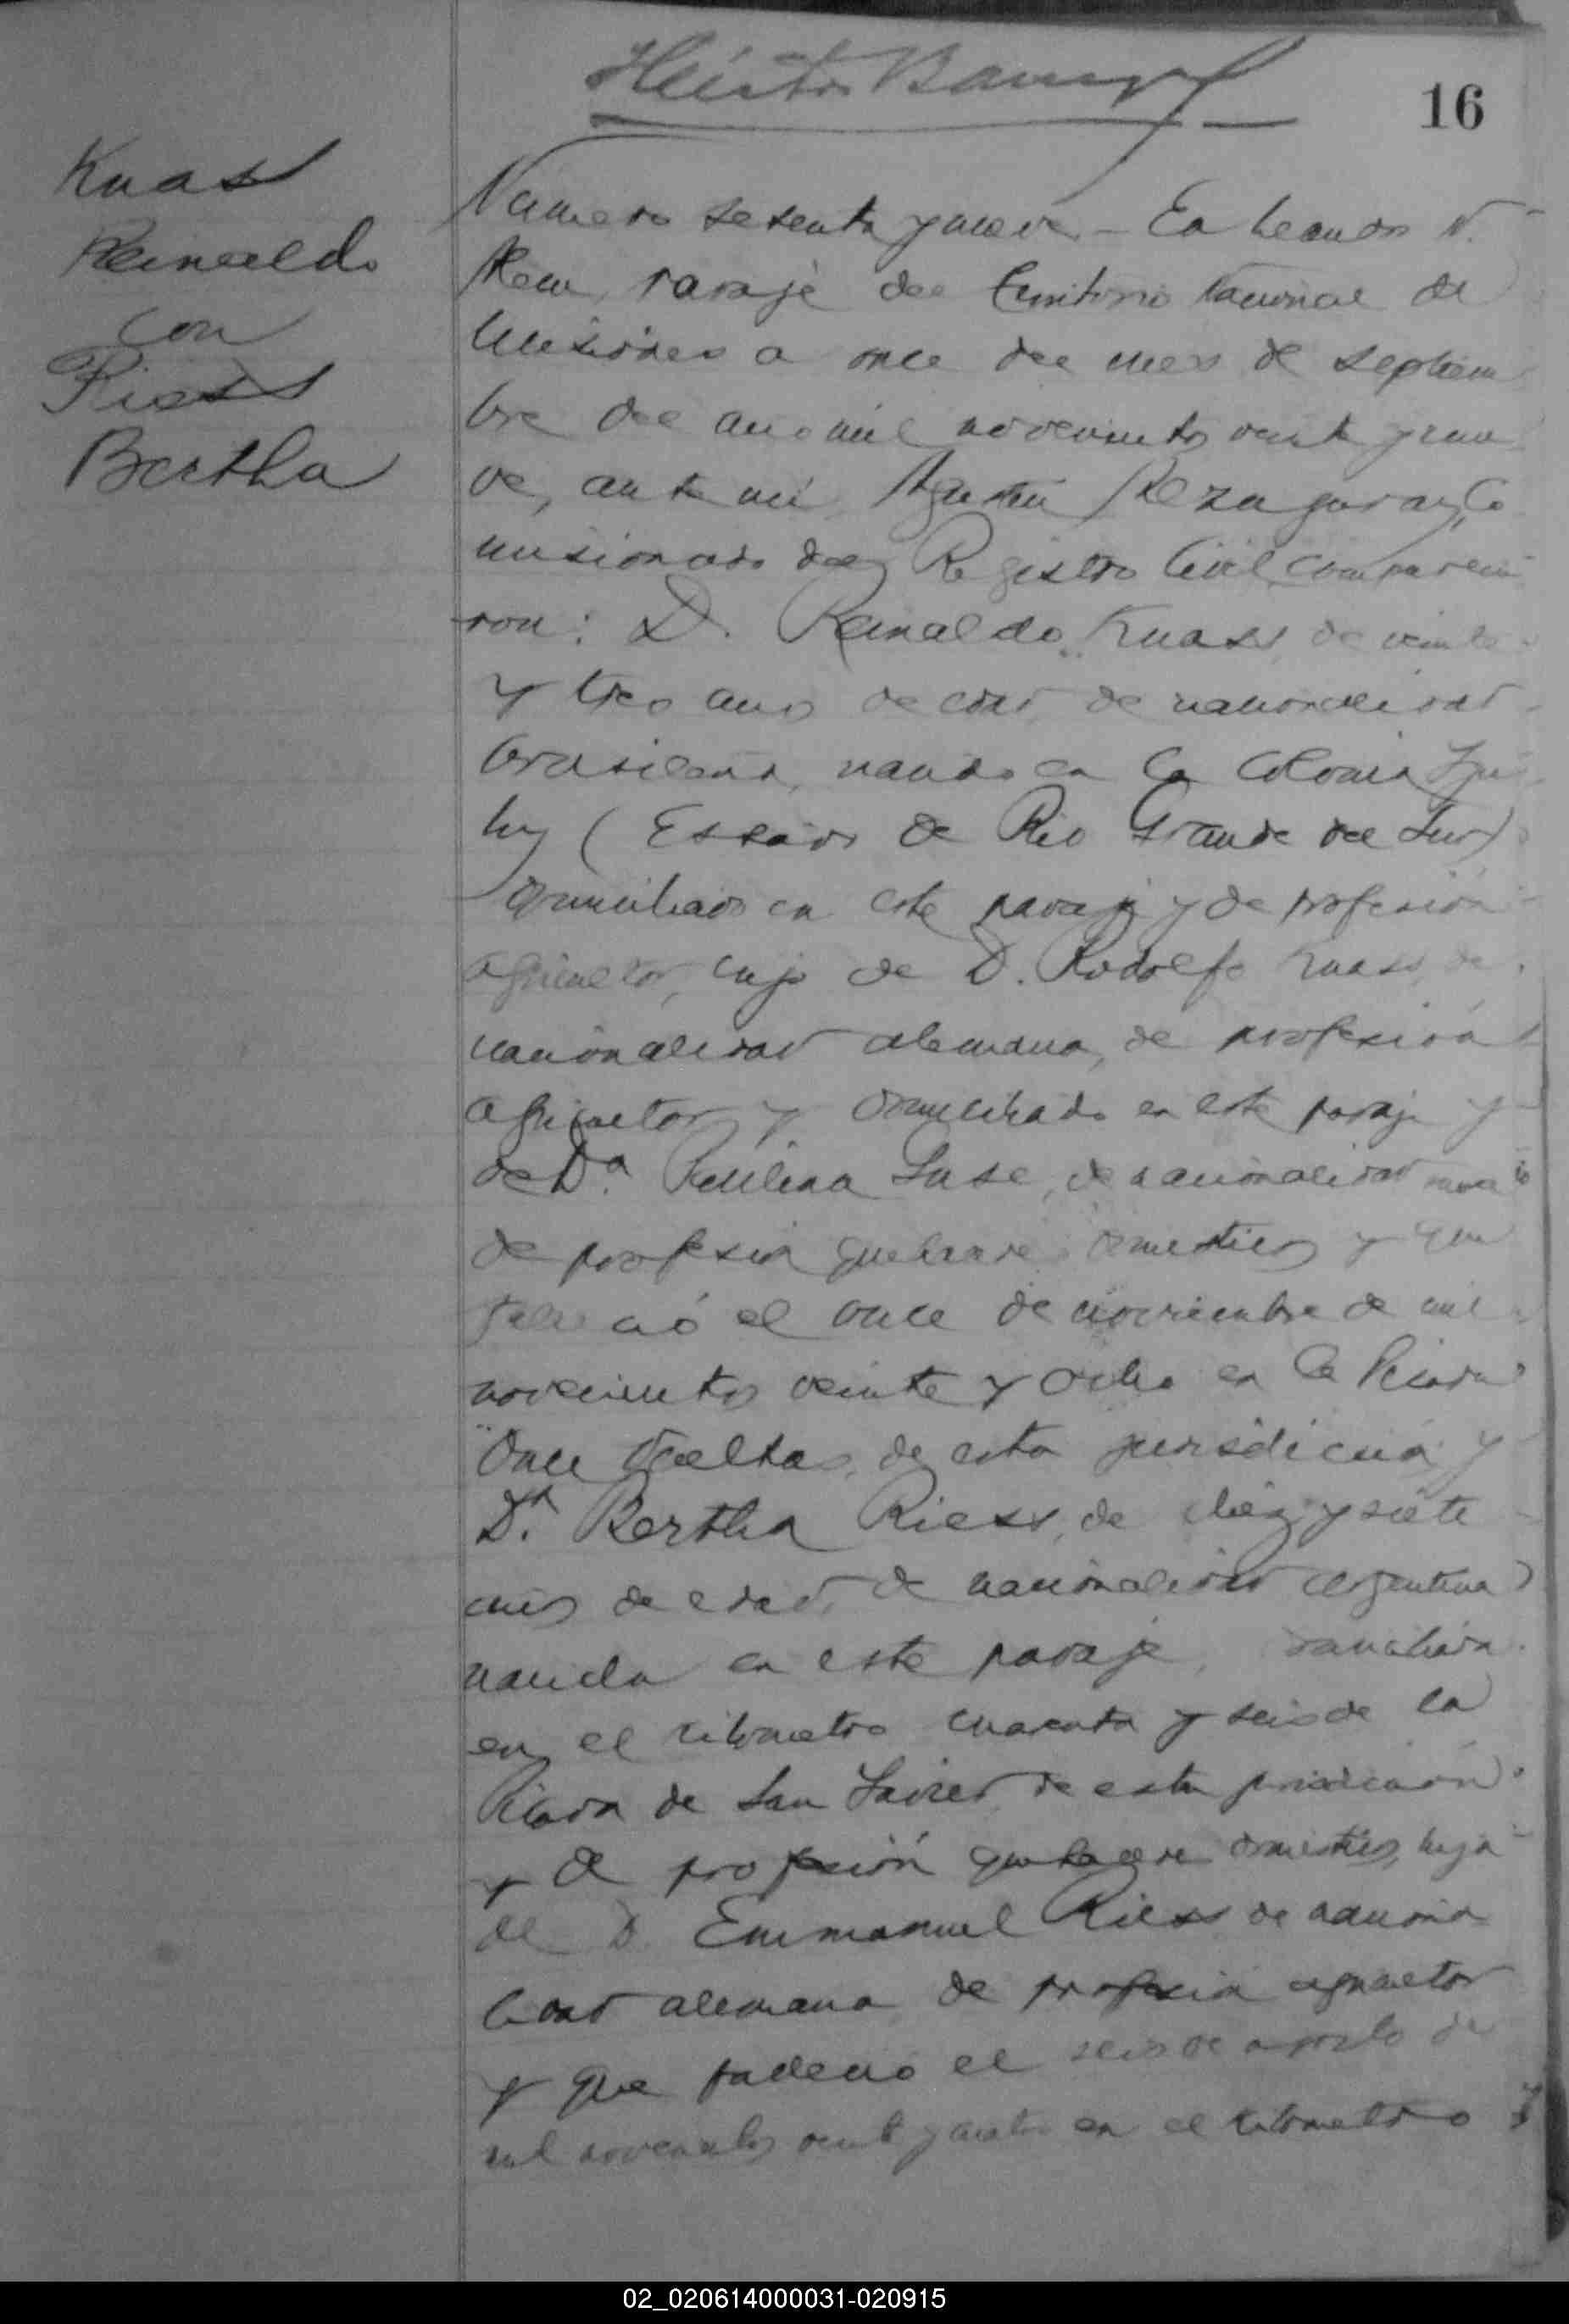 Héctor Bampf
16
Knass
Reinaldo
con
Riess
Bertha
Numero setenta y nueve - En Leandro N.
Alem, paraje del Territorio Nacional de
Misiones a once del mes de septiem
bre del año mil novecientos veinte y nue
ve, ante mi Agustin Elzagaray, Co
misionado del Registro Civil comparecie
ron: D. Reinaldo Knass, de veinte
y tres años de edad de nacionalidad
brasileña, nacido en la Colonia Iju
hy (Estado de Rio Grande del Sur)
domiciliado en este paraje y de profesión
agricultor, hijo de D. Rodolfo Knass, de
nacionalidad alemana, de profesión
agricultor y domiciliado en este paraje y
de Dª. Paulina Luse, de nacionalidad
de profesión quehaceres domesticos y que
falleció el once de noviembre de mil
novecientos veinte y ocho en la Picada
Once Vueltas, de esta jurisdicción y
Dª. Bertha Riess, de diez y siete
años de edad, de nacionalidad argentina
nacida en este paraje, domiciliada
en el kilometro cuarenta y seis de la
Picada de San Javier de esta jurisdicción
y de profesión quehaceres domesticos, hija
de D. Emmanuel Riess de naciona
lidad alemana, de profesión agricultor
y que fallecio el seis de agosto de
mil novecientos veinte y cuatro en el kilometro
02_020614000031-020915